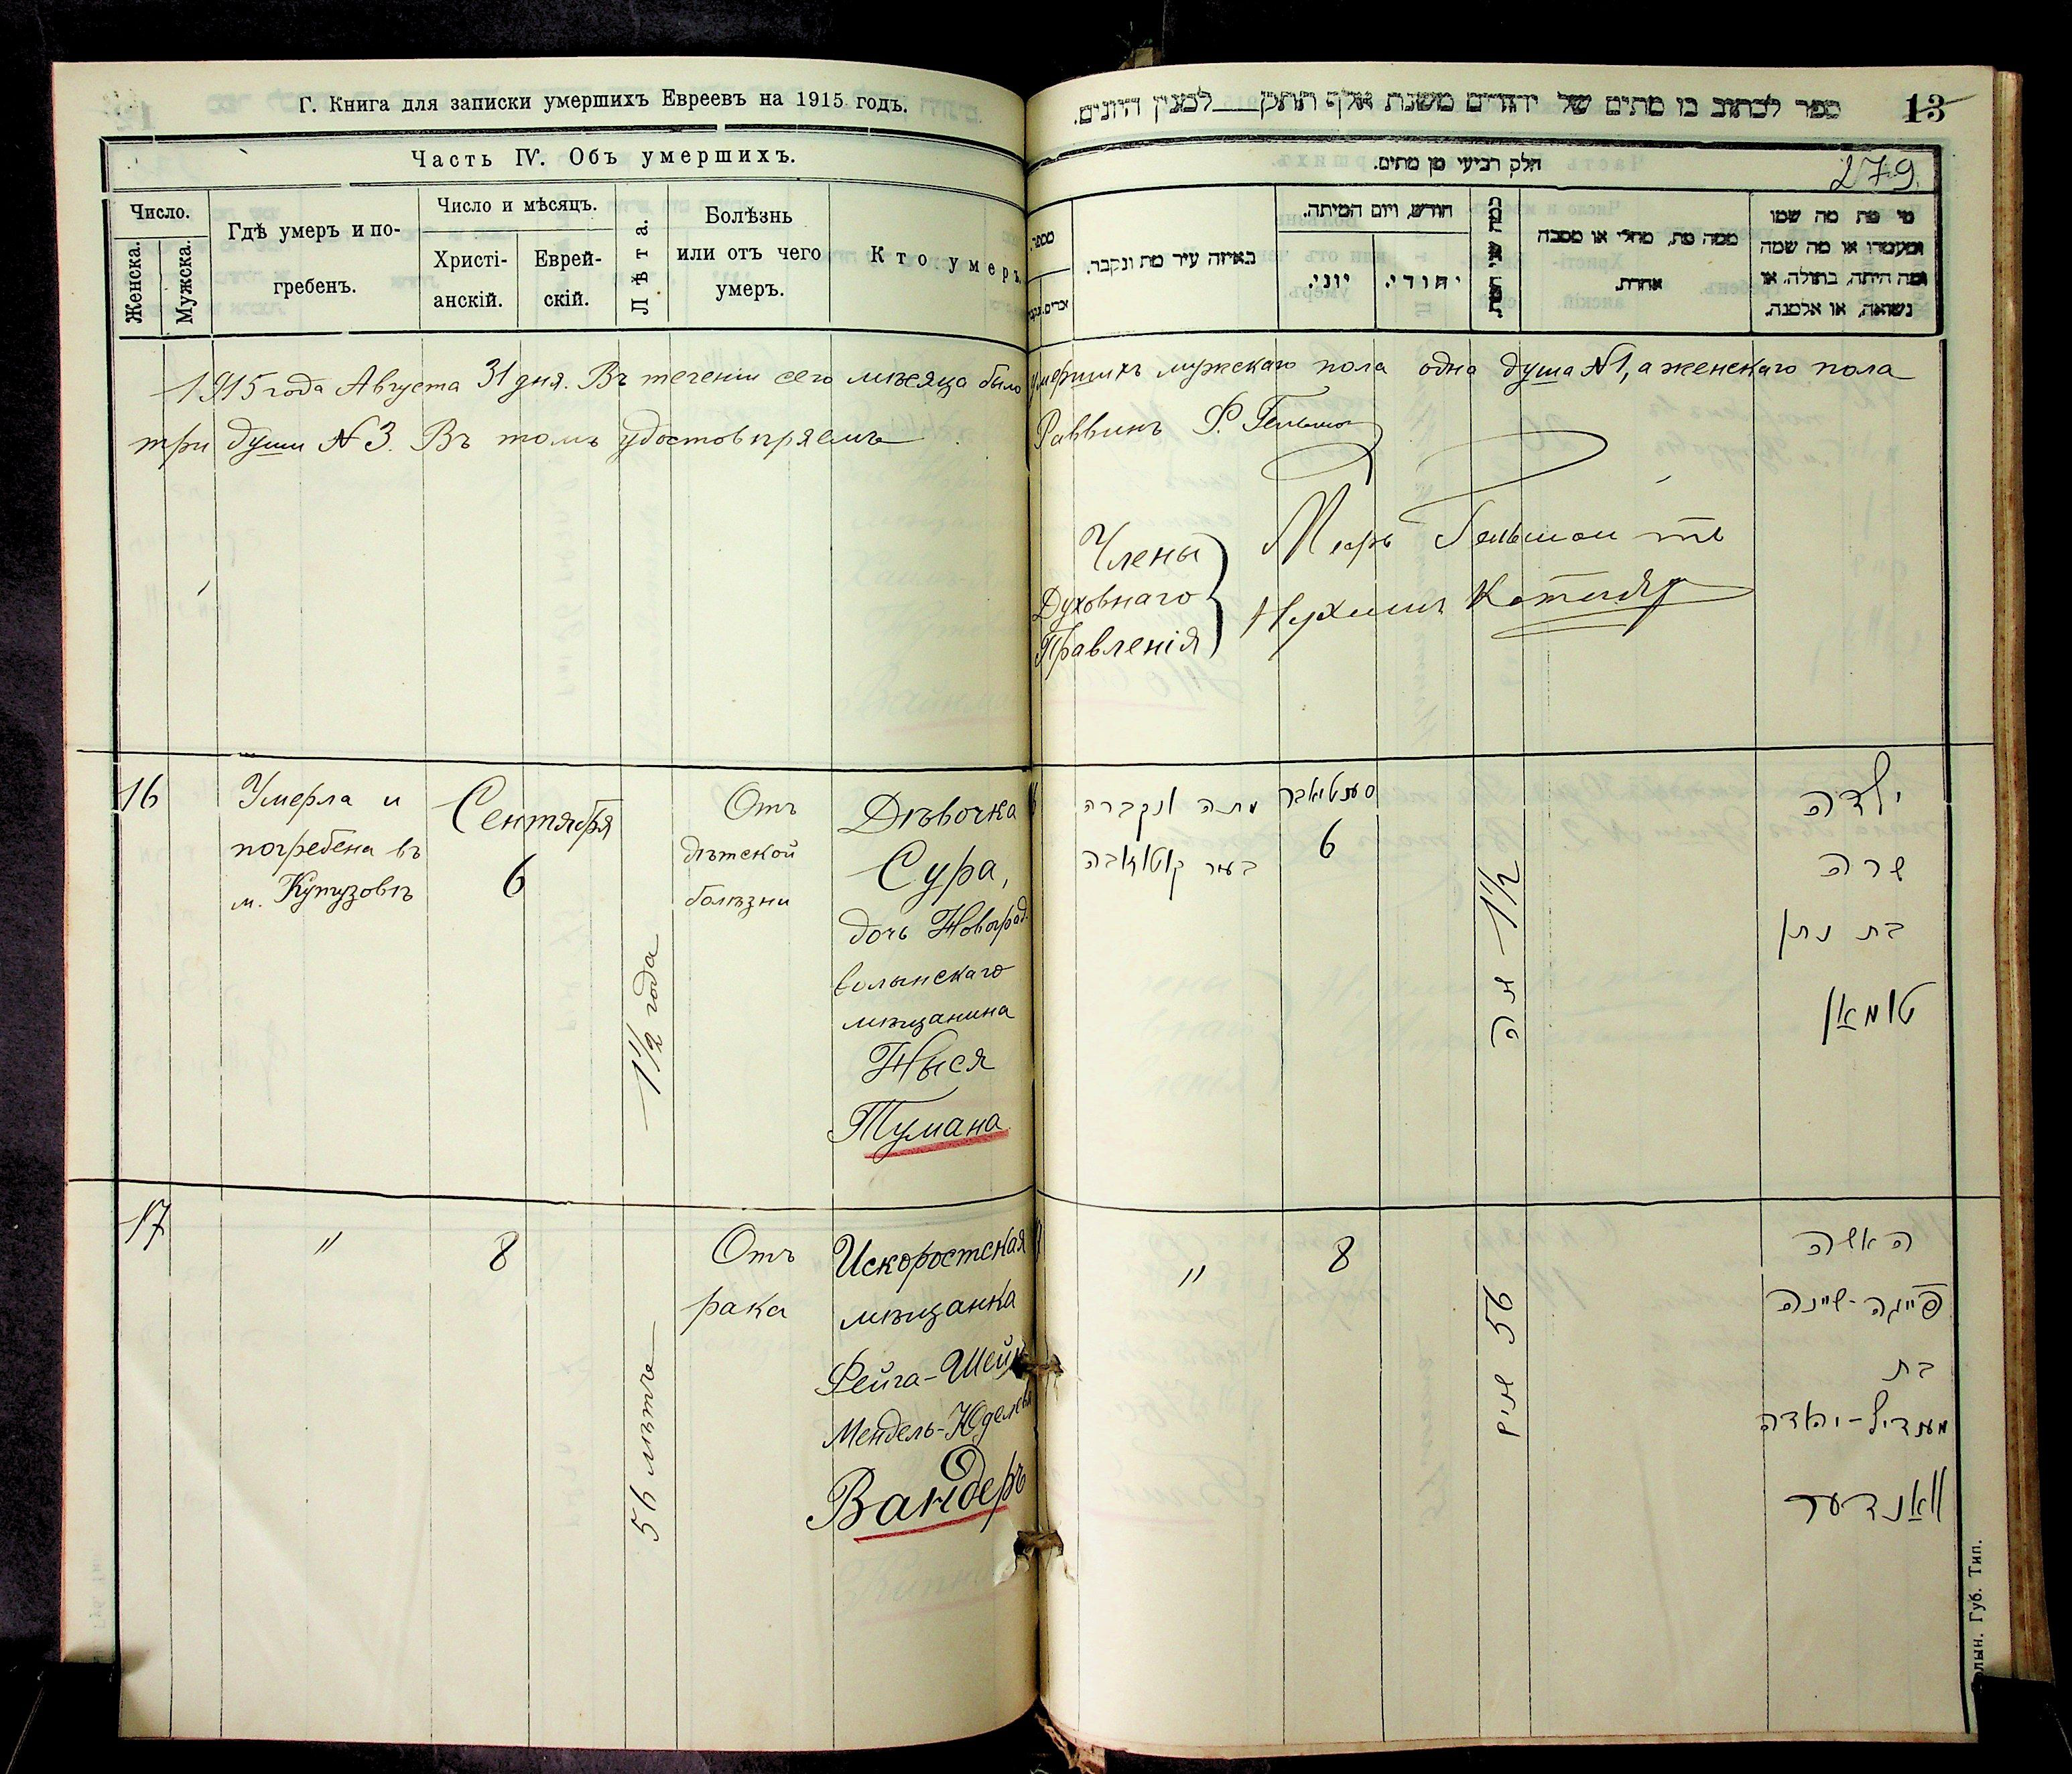 Г. Книга для записки умершихъ Евреевъ на 1915 годъ.
Часть IV. Объ умершихъ.
Число.
Женска.
Мужска.
Гдѣ умеръ и по-
гребенъ.
Число и мѣсяцъ.
Христі-
анскій.
Еврей-
скій.
Лѣта.
Болѣзнь
или отъ чего
умеръ.
Кто умеръ.
ספר לכתוב בו מתים של יהודים משנת אלף תתקן למנין היונים.
13
279.
חלק רביעי מן מתים.
מספר.
באיזה עיר מת ונקבר.
חודש, ויום המיתה.
יוני.
יהודי.
כמה שני
ממה מת, מחלי או מסבה
אחרת.
מי מת מה שמו
ומעמדו או מה שמה
ומה היתה, בתולה, או
נשואה, או אלמנה.
1915 года Августа 31 дня. Въ теченіи сего мѣсяца было умершихъ мужскаго пола одна душа №1, а женскаго пола
три души № 3. Въ томъ удостовѣряемъ
Раввинъ Ф.
Члены
Духовнаго
Правленія
16
Умерла и
погребена въ
м. Кутузовъ
Сентября
6
1½ года
Отъ
дѣтской
болѣзни
Дѣвочка
Сура,
дочь Новоград.
волынскаго
мѣщанина
Ныся
Тумана
מתה ונקברה
בעיר קוטוזובה
סעטיאבר
6
1½ שנה
ילדה
שרה
בת נתן
טומאן
17
"
8
56 лѣтъ
Отъ
рака
Искоростская
мѣщанка
Фейга-Шейн
Мендель-Юделевн
Вандеръ
"
8
56 שנים
האשה
פייגה-שיינה
בת
מענדיל-יהודה
וואנדער
Губ. Тип.